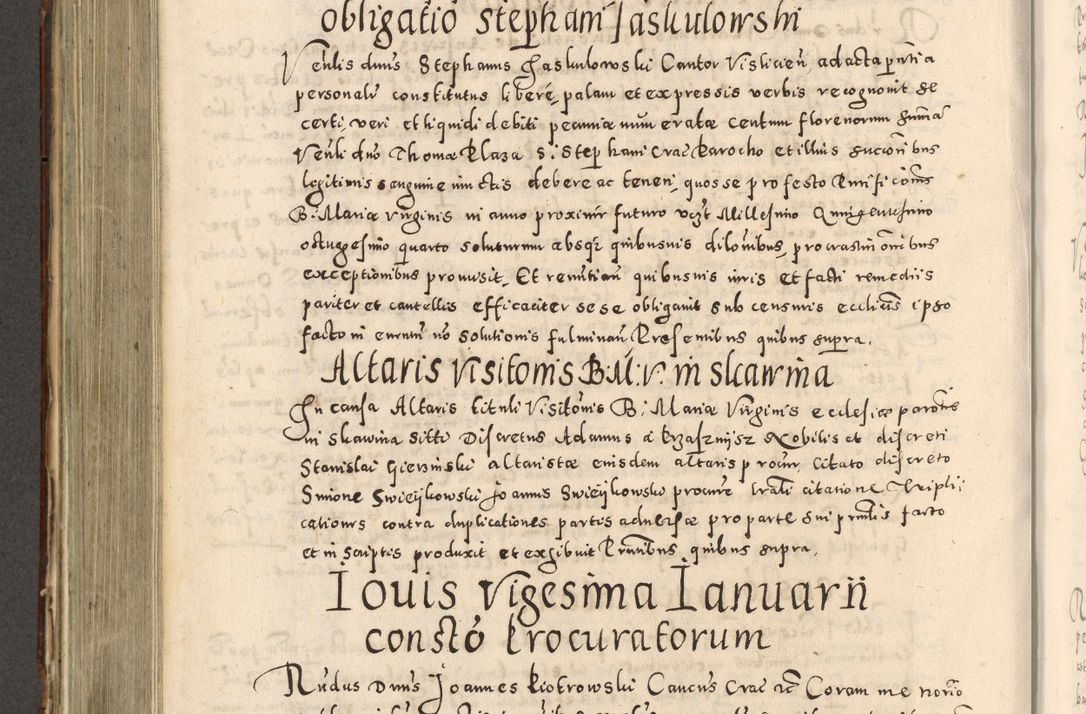 obligatio Stephani Jaskulowski
Venlis dnus Stephanus Jaskulowski Cantor Vislicien, ad acta pntia
personalr constitutus libere, palam et expressis verbis recognovit se
certi, veri et liquidi debiti pecuniæ numeratæ centum florenorum summā
Venli dno Thomæ Plaza S. Stephani Crac Parocho et illius succoribus
legitimis sanguine iunctis debere ac teneri, quos se pro festo Purificōnis
B. Mariæ Virginis in anno proxime futuro vczt Millesimo Quingentesimo
octuagesimo quarto soluturum absqz quibusuis dilonibus, procrastinōnibus
exceptionibus promisit, Et renuntian quibusuis iuris et facti remediis
pariter et cautellis efficaciter sese obligauit sub censuris eccliciis ipso
facto in euentu no solutionis fulminan Presentibus quibus supra.
Altaris Visitonis B.M.V. in Skawina
In causa Altaris tituli Visitōnis B. Mariæ Virginis ecclesiæ paroālis
in Skawina sitti Discretus Adamus a Krzasznijsz Nobilis et discreti
Stanislai altaristæ eiusdem altaris procur, Citato discreto
Smone Swieijkowski Joannis Swieijkowski procure trali citatione Tripli:
cationes contra duplicationes partis aduersæ pro parte sui prnlis facto
et in scriptis produxit et exhibuit Prntibus quibus supra.
Iouis Vigesima Ianuarii
constō Procuratorum
Rndus Dnus Joannes Piotrowski Canc9 Crac Coram me norio